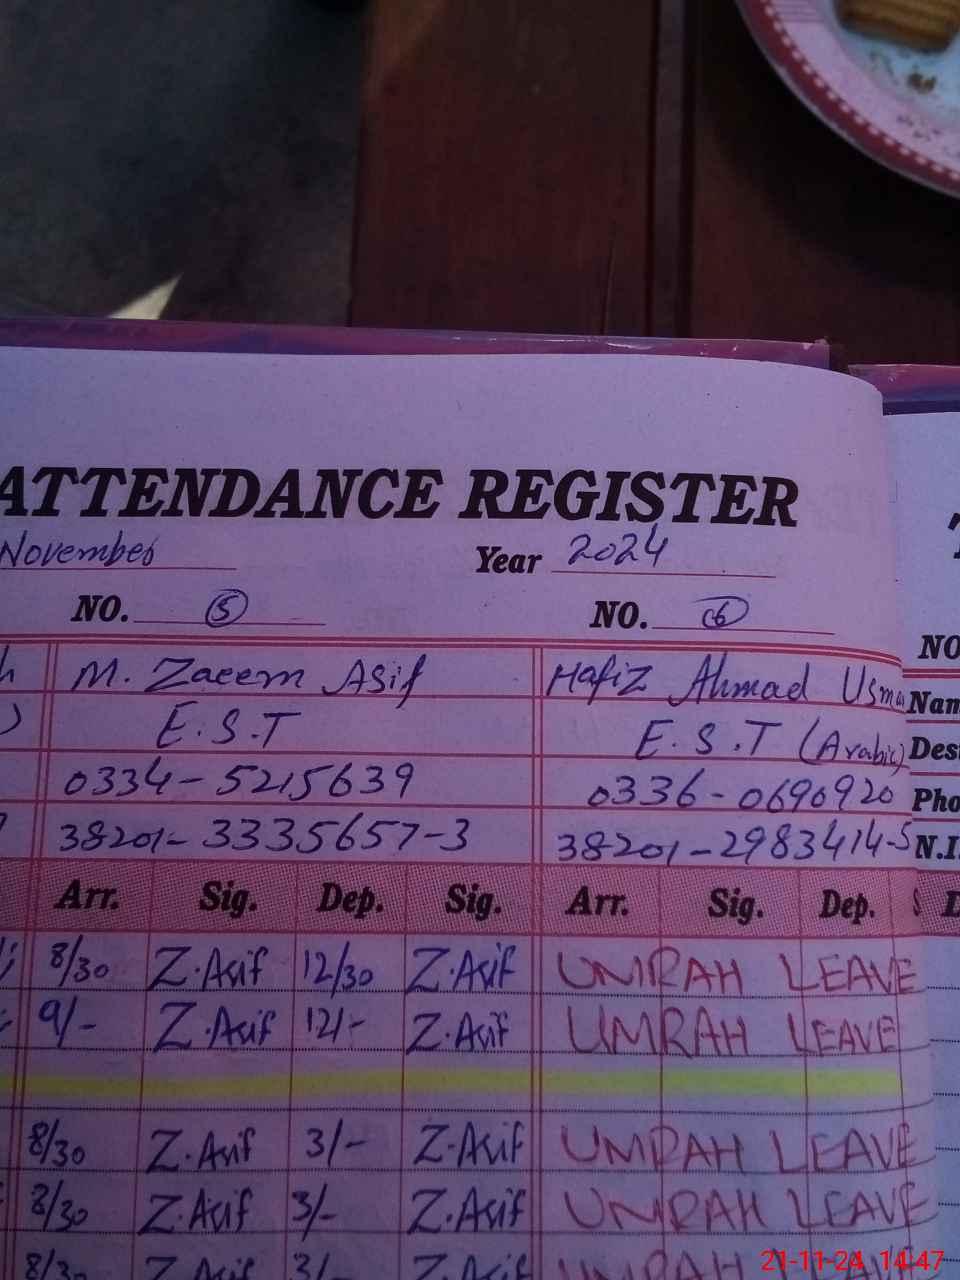 ATTENDANCE REGISTER
November Year 2024
NO. 5 NO. 6
M. Zaeem Asif Hafiz Ahmad Usma Nam
E.S.T E.S.T (Arabic) Des
0334-5215639 0336-0690920 Pho
38201-3335657-3 38201-2983414-5 N.I.
Arr. Sig. Dep. Sig. Arr. Sig. Dep.
8/30 Z.Asif 12/30 Z.Asif UMRAH LEAVE
9/- Z.Asif 12/- Z.Asif UMRAH LEAVE
8/30 Z.Asif 3/- Z.Asif UMRAH LEAVE
8/30 Z.Asif 3/- Z.Asif UMRAH LEAVE
8/30 Z.Asif 3/- Z.Asif UMRAH LEAVE
21-11-24 14:47